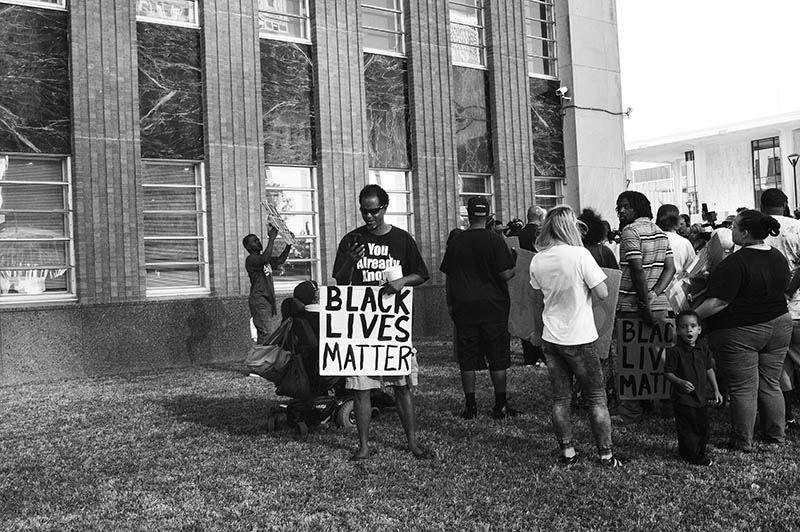 You
Already
Know
BLACK
LIVES
MATTER
BLACK
LIVES
MATTER